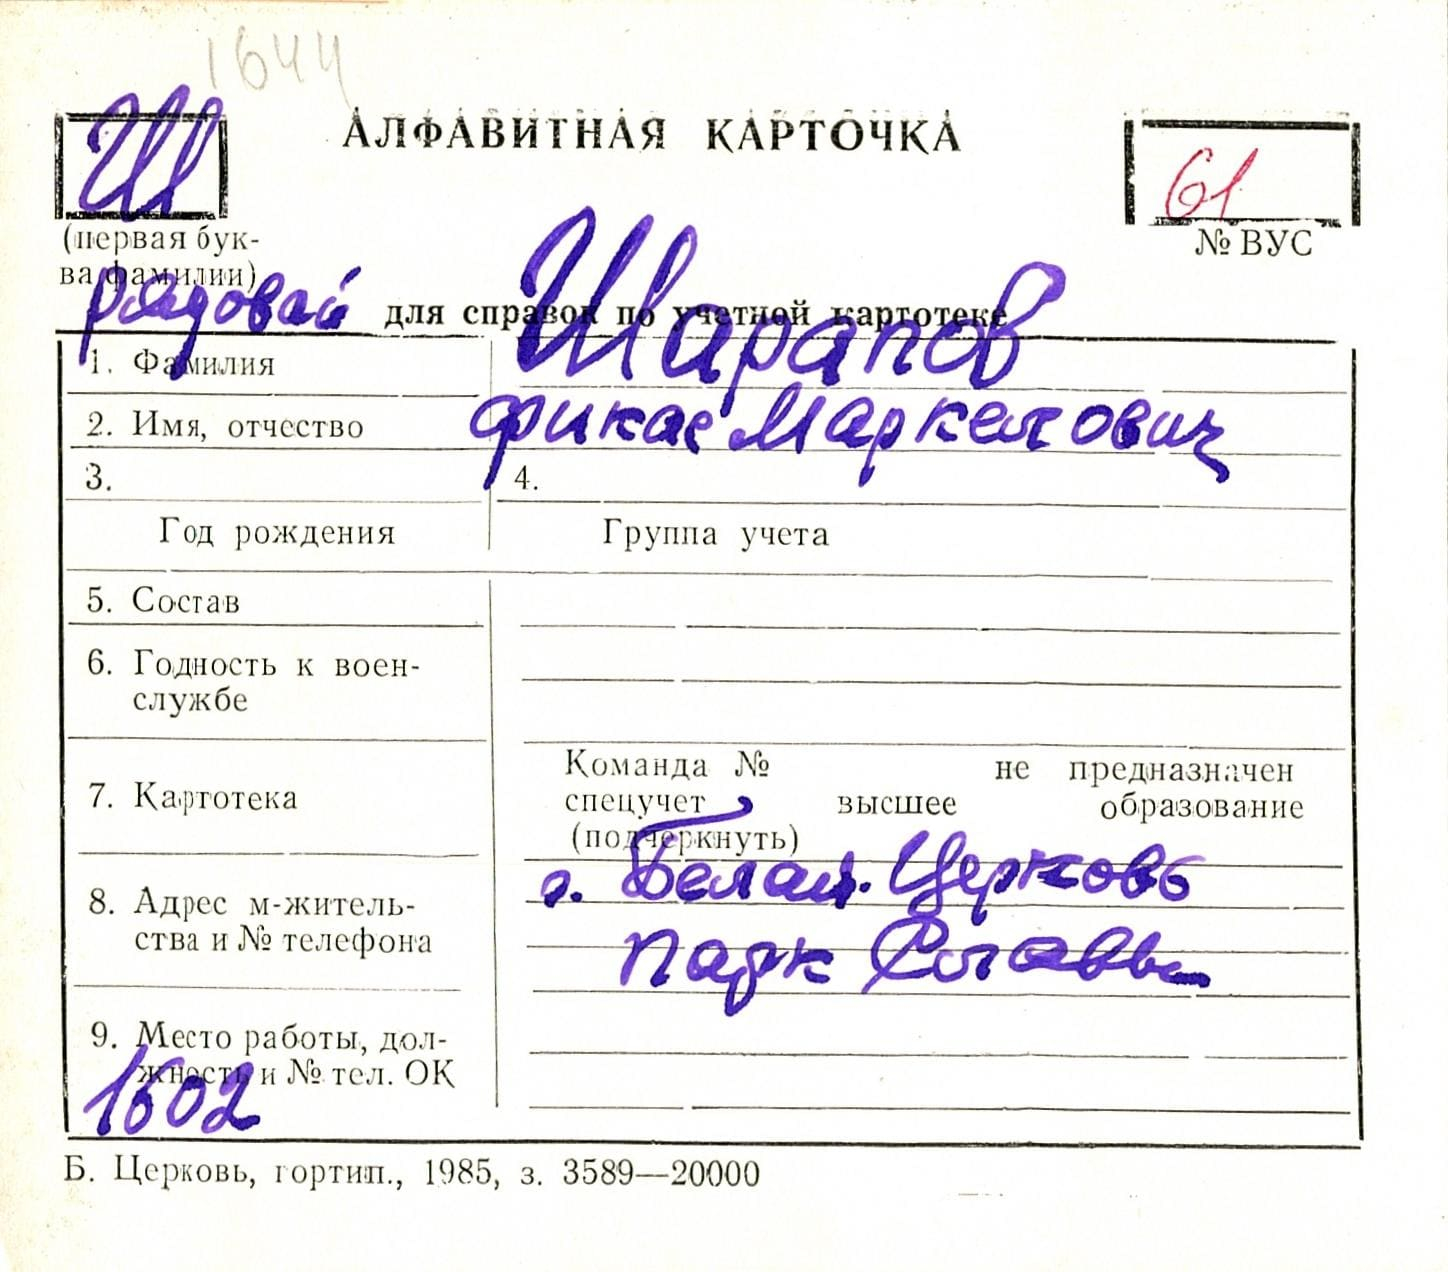 1644
Ш
АЛФАВИТНАЯ КАРТОЧКА
61
(первая бук-
ва фамилии)
№ ВУС
рядовой
для справок по учетной картотеке
1. Фамилия
Шарапов
2. Имя, отчество
Фикас Маркелович
3.
4.
Год рождения
Группа учета
5. Состав
6. Годность к воен-
службе
7. Картотека
Команда № не предназначен
спецучет высшее образование
(подчеркнуть)
8. Адрес м-житель-
ства и № телефона
г. Белая Церковь
парк
9. Место работы, дол-
жность и № тел. ОК
1602
Б. Церковь, гортип., 1985, з. 3589—20000